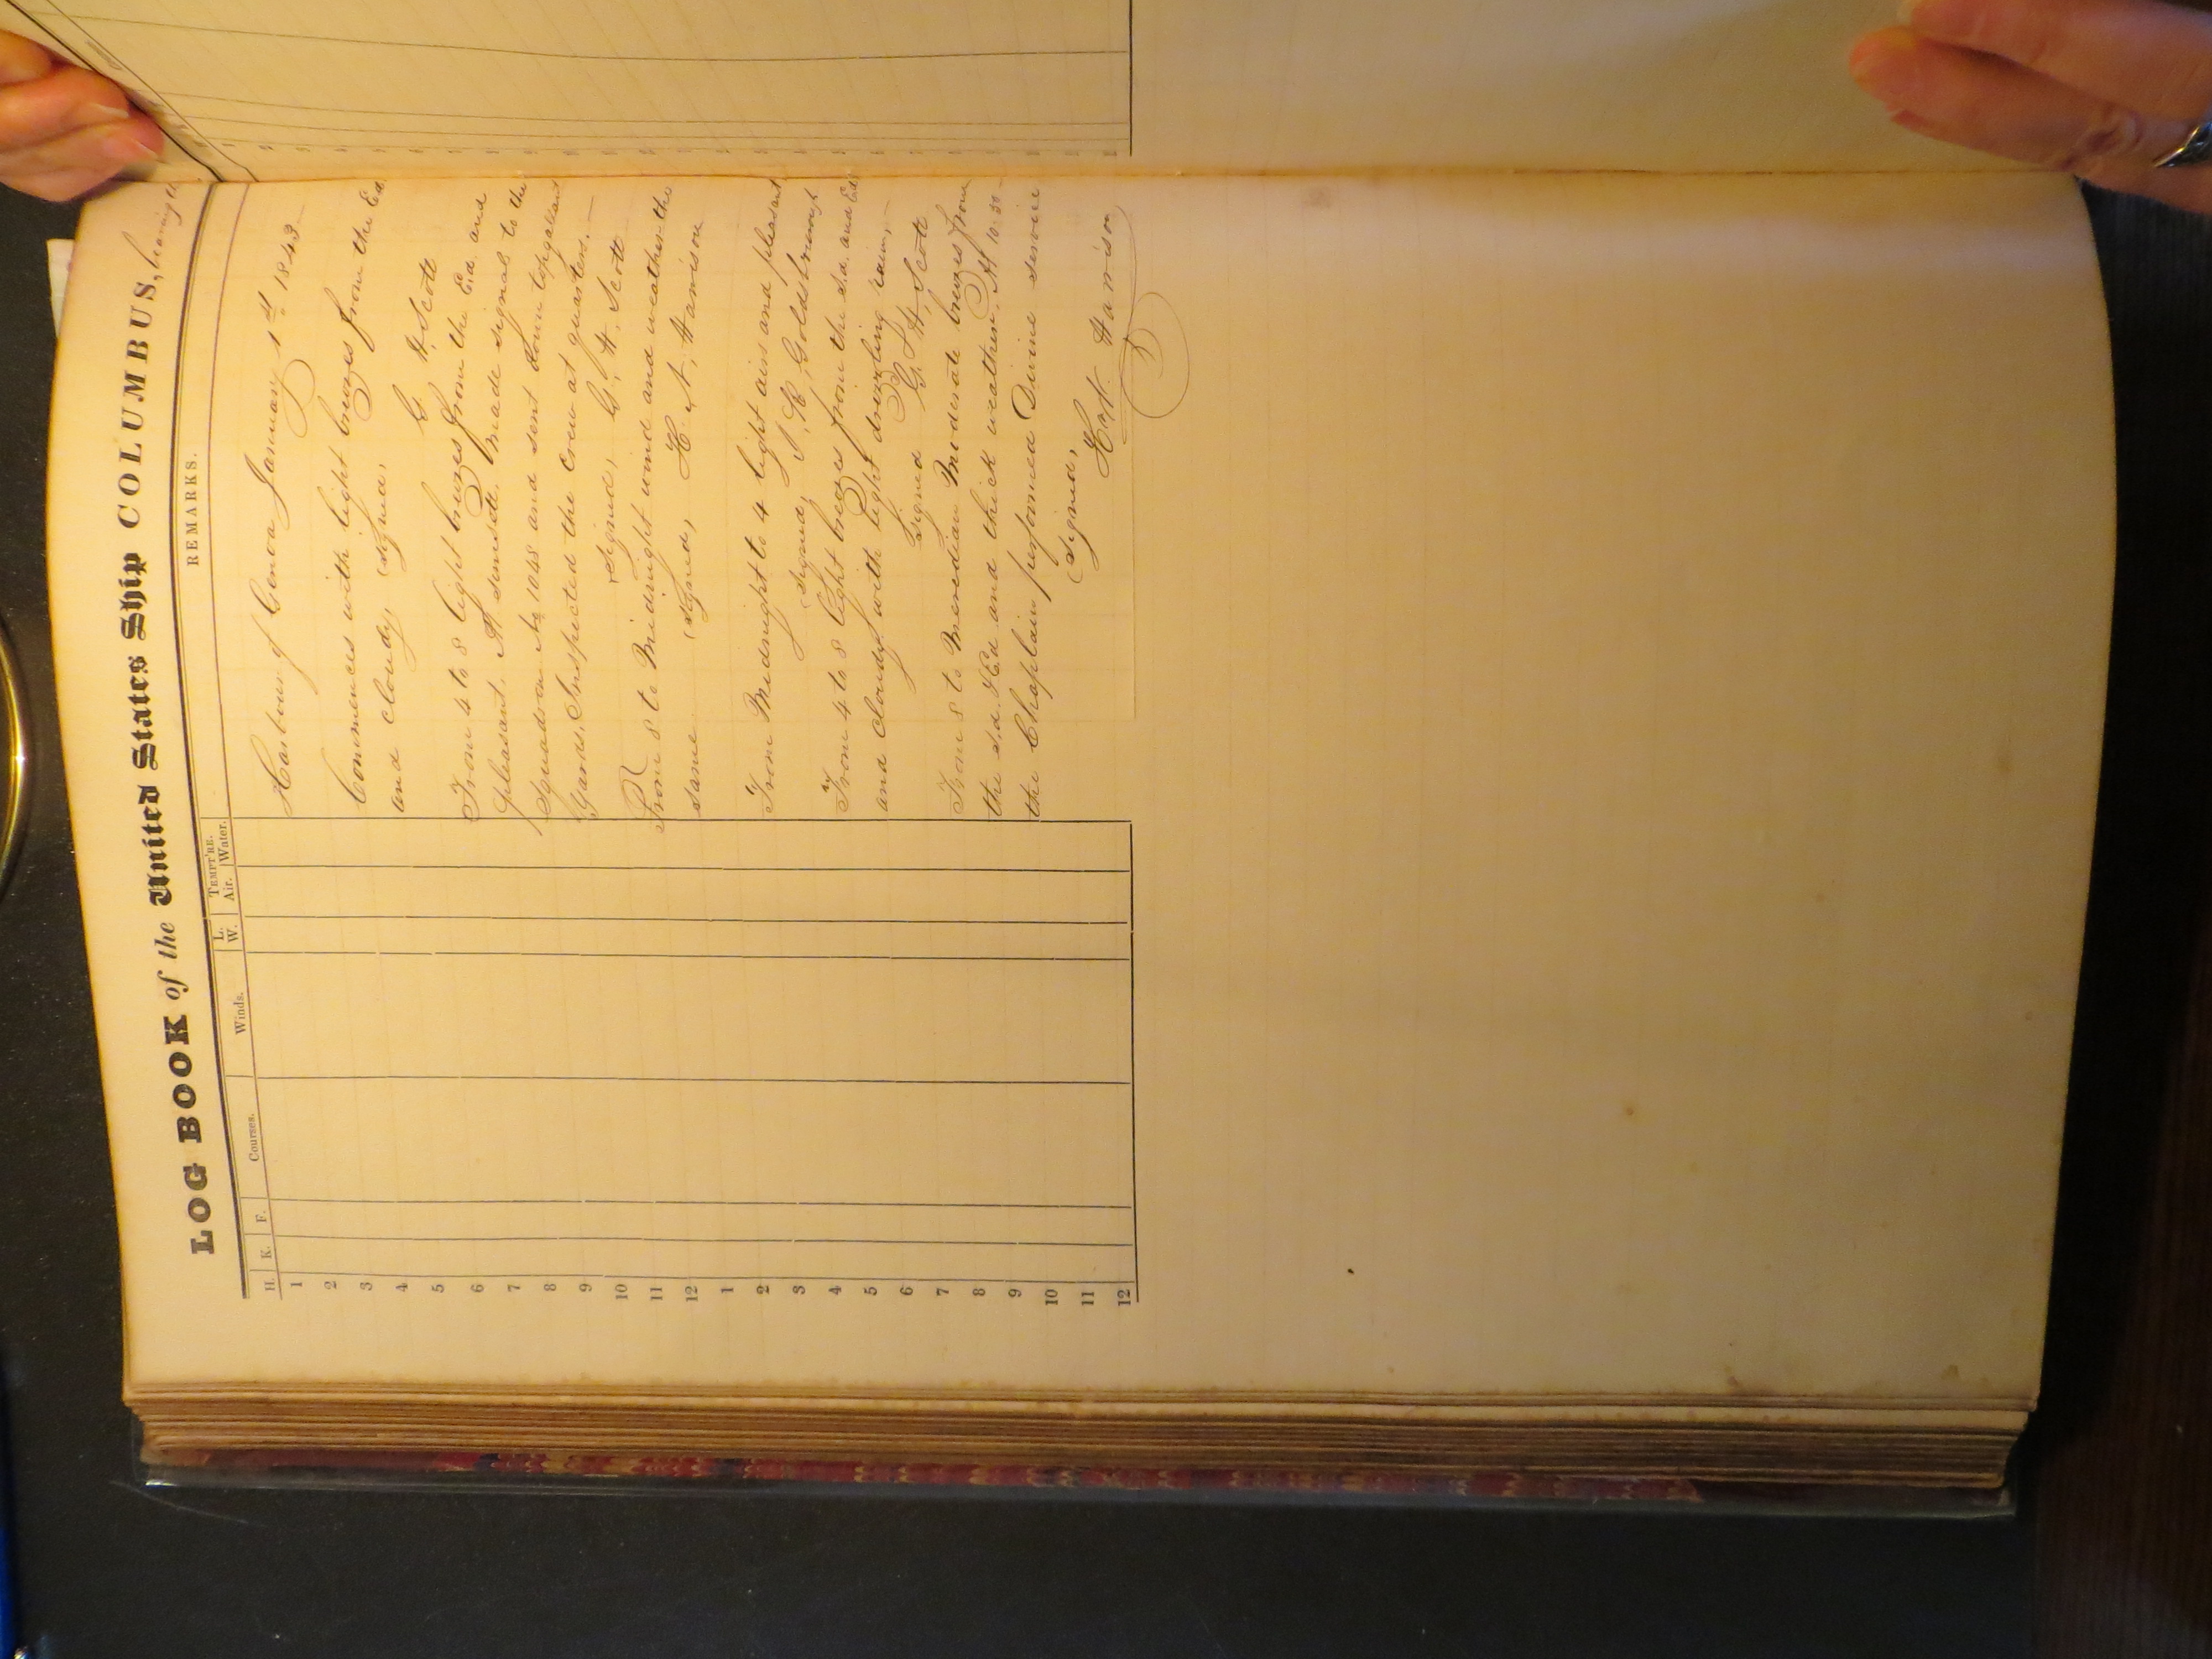 LOG BOOK of the United States Ship COLUMBUS, bearing
H. K. F. Courses. Winds. L. W. TEMPT'RE. Air. Water. REMARKS.
Harbour of Genoa January 1st 1843
Commences with light breezes from the Ed
and cloudy (signed, G. H. Scott
From 4 to 8 light breezes from the Ed. and
pleasant. At sunset made signal to the
Squadron No 1048 and sent down topgallant
Yards, Inspected the Crew at quarters.—
(signed, G. H. Scott
From 8 to Midnight wind and weather the
same (signed, H. N. Harrison
From Midnight to 4 light airs and pleasant
(signed, Goldsborough
From 4 to 8 light breezes from the Sd. and Ed
and Cloudy with light drizzling rain,—
Signed G. H. Scott
From 8 to Meredian Moderate breezes from
the Sd. & Ed and thick weather. At 10.30
the Chaplain performed Divine service
(signed, H. N. Harrison
1
2
3
4
5
6
7
8
9
10
11
12
1
2
3
4
5
6
7
8
9
10
11
12